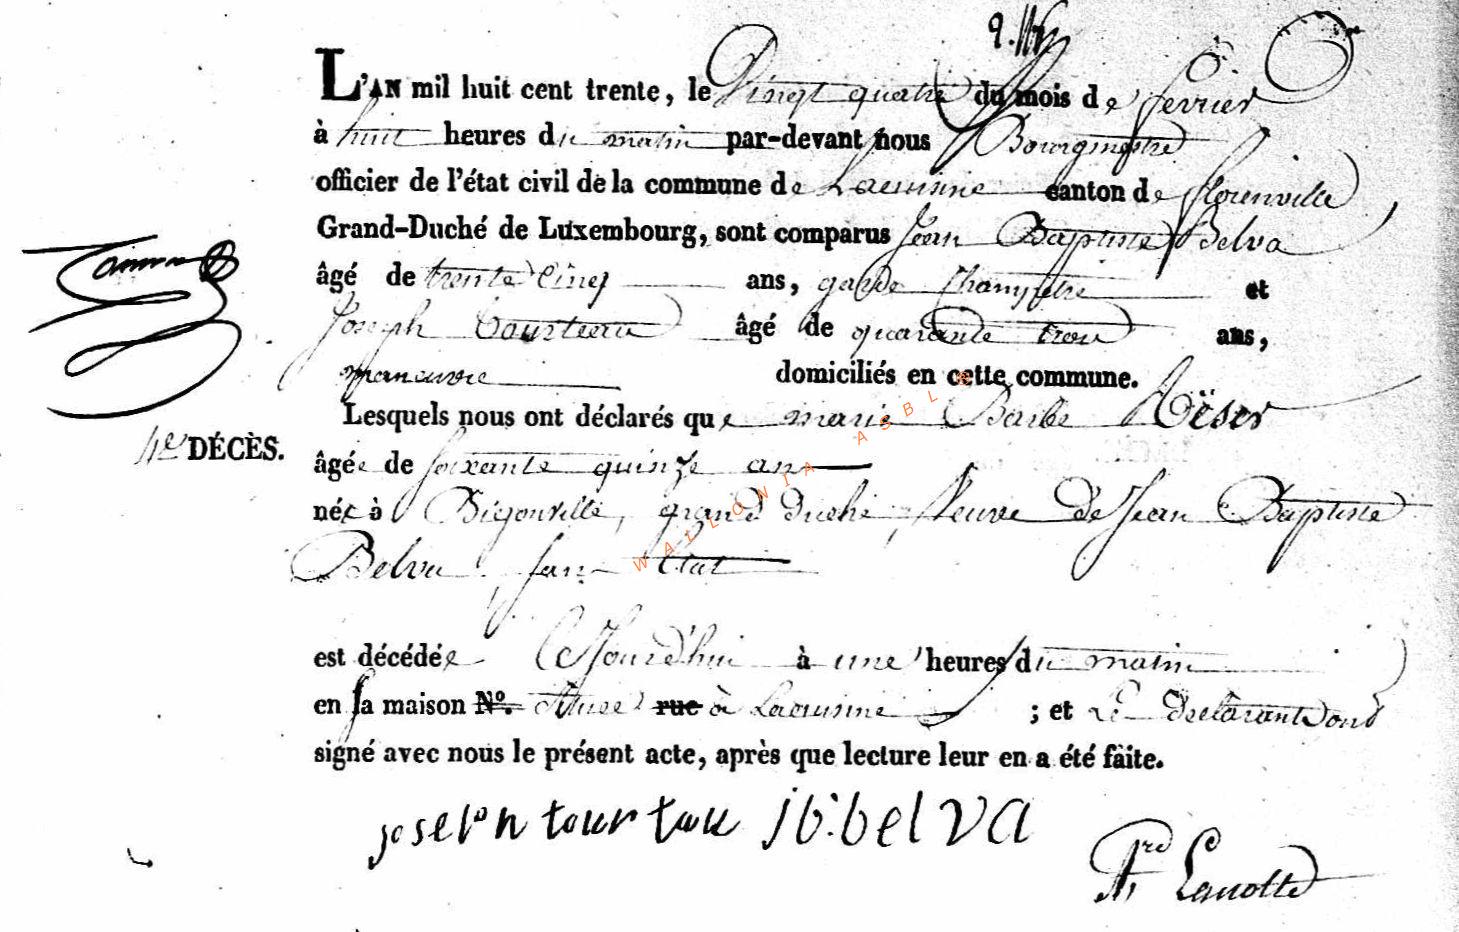 L'AN mil huit cent trente, le Vingt quatre du mois de fevrier
à huit heures du matin par-devant nous Bourgmestre
officier de l'état civil de la commune de Lacuisine canton de florenville
Grand-Duché de Luxembourg, sont comparus Jean Baptiste Belva
âgé de trente Cinq ans, garde Champetre et
Joseph Tourteau âgé de quarante trois ans,
maneuvre domiciliés en cette commune.
Lesquels nous ont déclarés que marie Barbe
4e DÉCÈS.
âgée de soixante quinze an
née à Bigonville, grand duché, Veuve De Jean Baptiste
Belva, sans état
est décédée Cejourd'hui à une heures du matin
en sa maison No. située rue à Lacuisine ; et Les Declarants ont
signé avec nous le présent acte, après que lecture leur en a été faite.
joseph tourtau jb:belva
Lamotte
WALLONIA ASBL